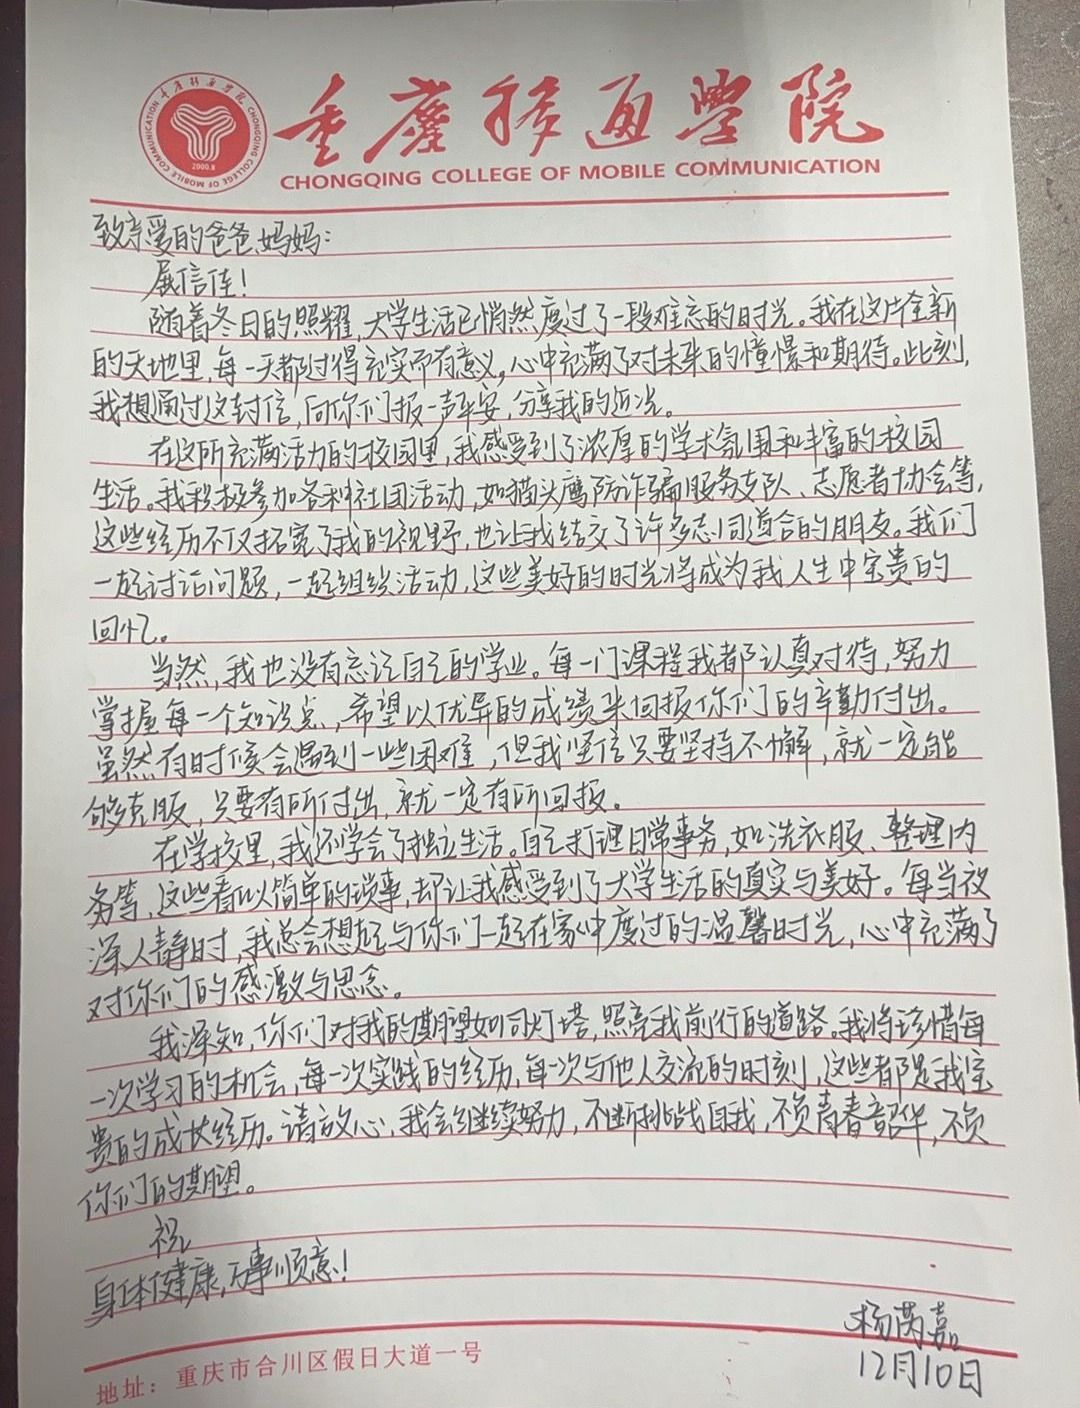 重庆移通学院
CHONGQING COLLEGE OF MOBILE COMMUNICATION
重庆移通学院 CHONGQING COLLEGE OF MOBILE COMMUNICATION
2000.8
致亲爱的爸爸妈妈：
展信佳！
随着冬日的照耀，大学生活已悄然度过了一段难忘的时光。我在这片全新
的天地里，每一天都过得充实而有意义，心中充满了对未来的憧憬和期待。此刻，
我想通过这封信，向你们报一声平安，分享我的近况。
在这所充满活力的校园里，我感受到了浓厚的学术氛围和丰富的校园
生活。我积极参加各种社团活动，如猫头鹰防诈骗服务支队、志愿者协会等，
这些经历不仅拓宽了我的视野，也让我结交了许多志同道合的朋友。我们
一起讨论问题，一起组织活动，这些美好的时光将成为我人生中宝贵的
回忆。
当然，我也没有忘记自己的学业。每一门课程我都认真对待，努力
掌握每一个知识点，希望以优异的成绩来回报你们的辛勤付出。
虽然有时候会遇到一些困难，但我坚信只要坚持不懈，就一定能
够克服，只要有所付出，就一定有所回报。
在学校里，我还学会了独立生活。自己打理日常事务，如洗衣服、整理内
务等，这些看似简单的琐事，却让我感受到了大学生活的真实与美好。每当夜
深人静时，我总会想起与你们一起在家中度过的温馨时光，心中充满了
对你们的感激与思念。
我深知，你们对我的期望如同灯塔，照亮我前行的道路。我将珍惜每
一次学习的机会，每一次实践的经历，每一次与他人交流的时刻，这些都是我宝
贵的成长经历。请放心，我会继续努力，不断挑战自我，不负青春韶华，不负
你们的期望。
祝
身体健康，万事顺意！
杨芮嘉
12月10日
地址：重庆市合川区假日大道一号